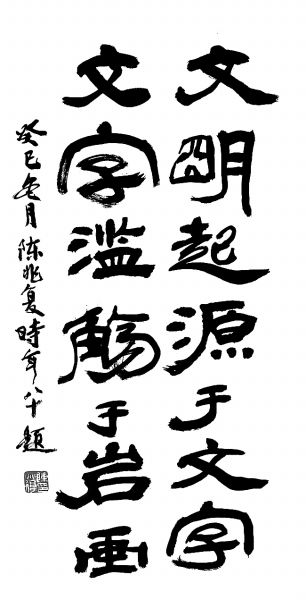 文明起源于文字
文字滥觞于岩画
癸巳冬月陈兆复時年八十题